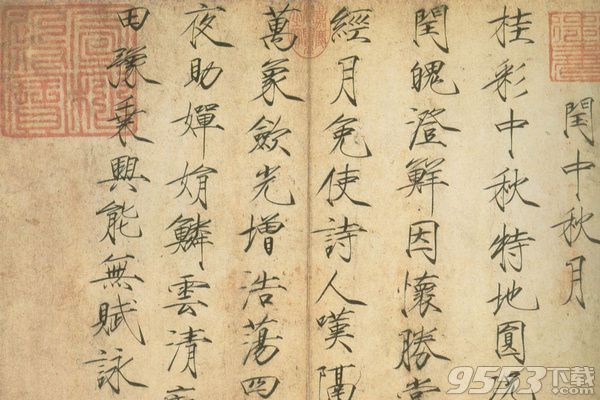 閏中秋月
桂彩中秋特地圓
閏魄澄鮮因懷勝賞
經月免使詩人嘆隔
萬象歛光增浩蕩四
夜助嬋娟鱗雲清
田豫乘興能無賦詠
9553下载
.com